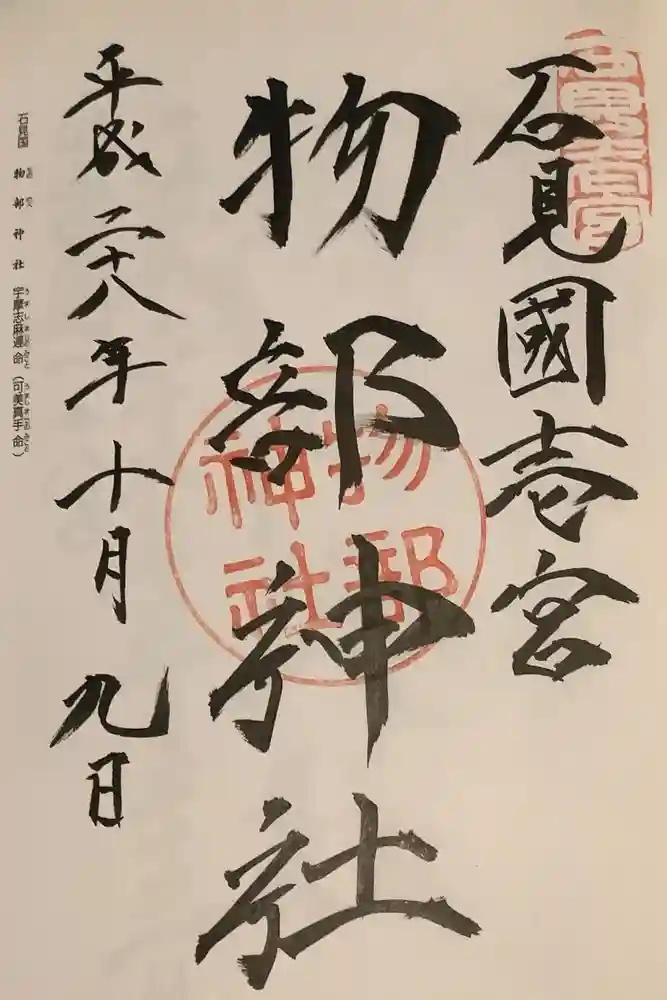 石見國壱宮
石見壱宮
物部神社
物部神社
平成二十八年十月九日
石見国 物部神社 宇摩志麻遅命(可美真手命)